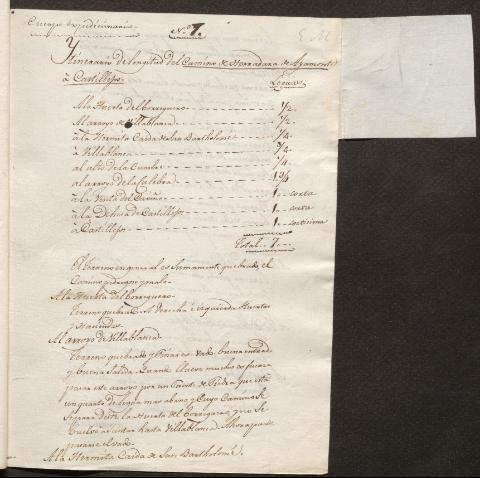 Cuerpo expedicionario
Nº 7.
E. M.
Itinerario de longitud del Camino de Herradura de Ayamonte
à Castillejos. Leguas
A la Huerta del Borreguero 1/2
Al arroyo de Villablanca 1/2
à la Hermita Caida de San Bartholomé 1/4
à Villablanca 3/4
al alto de la Cumbre 1/4
al arroyo de la Culebra 1 3/4
à la Venta del 1 corta
à la Dehesa de Castillejos 1 corta
à Castillejos 1 cortisima
Total 7
El terreno en general es sumamente quebrado, el
Camino pedregoso y malo.
A la Huerta del Borreguero
terreno quebrado. A derecha è izquierda Huertas
y Haciendas
Al arroyo de Villablanca
terreno quebrado y Pinares. Vado buena entrada
y buena salida. Quando llueve mucho es fuerza
pasar este arroyo por un Puente de Piedra que está
un quarto de legua mas abaxo y cuyo Camino se
separa desde la Huerta del Borreguero y no se
buelve à juntar hasta Villablanca. Ahora puede
pasarse el vado.
A la Hermita Caida de San Bartholomé.